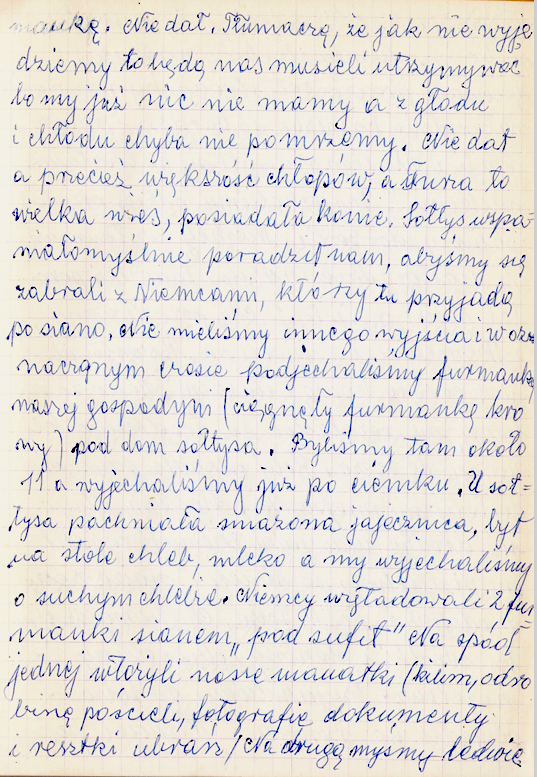 mankę. Nie dał. Tłumaczę, że jak nie wyje
dziemy to będą nas musieli utrzymywać
bo my już nic nie mamy a z głodu
i chłodu chyba nie pomrzemy. Nie dał
a przecież większość chłopów, a Hura to
wielka wieś, posiadała konie. Sołtys wspa-
niałomyślnie poradził nam, abyśmy się
zabrali z Niemcami, którzy tu przyjadą
po siano. Nie mieliśmy innego wyjścia i w ozn
naczonym czasie podjechaliśmy furmanką
naszej gospodyni (ciągnęły furmankę kro
wy) pod dom sołtysa. Byliśmy tam około
11 a wyjechaliśmy już po ciemku. U soł=
tysa pachniała smażona jajecznica, był
na stole chleb, mleko a my wyjechaliśmy
o suchym chlebie. Niemcy wyładowali 2 fur=
manki sianem „pod sufit" Na spód
jednej włożyli nasze manatki (kilim, odro
binę pościeli, fotografie dokumenty
i resztki ubrań/ Na drugą myśmy ledwie